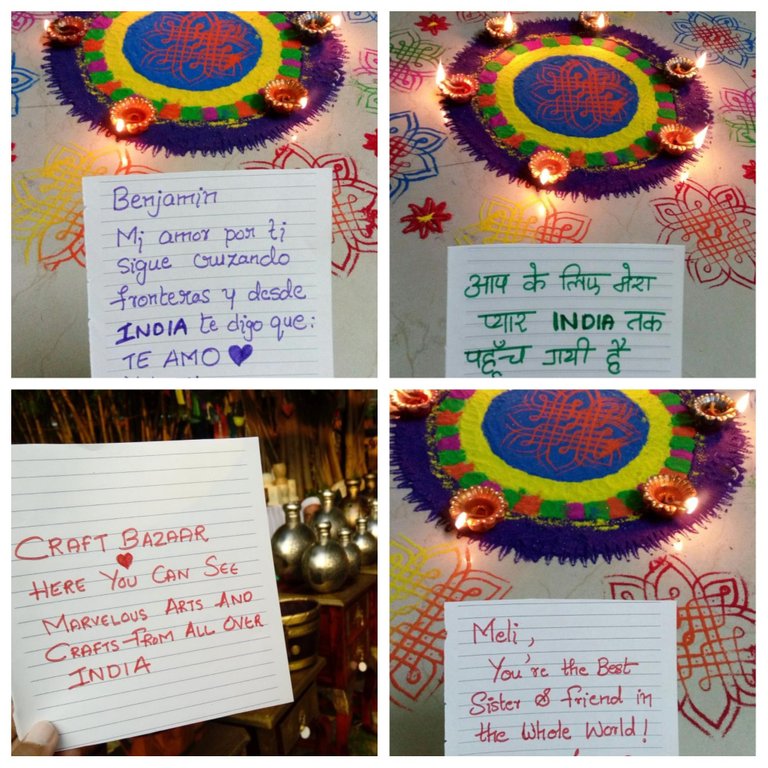 Benjamin
Mi amor por ti
sigue cruzando
fronteras y desde
INDIA te digo que:
TE AMO
आप के लिए मेरा
प्यार INDIA तक
पहुँच गयी है
CRAFT BAZAAR
HERE YOU CAN SEE
MARVELOUS ARTS AND
CRAFTS FROM ALL OVER
INDIA
Meli,
You're the Best
Sister & friend in
the Whole World!